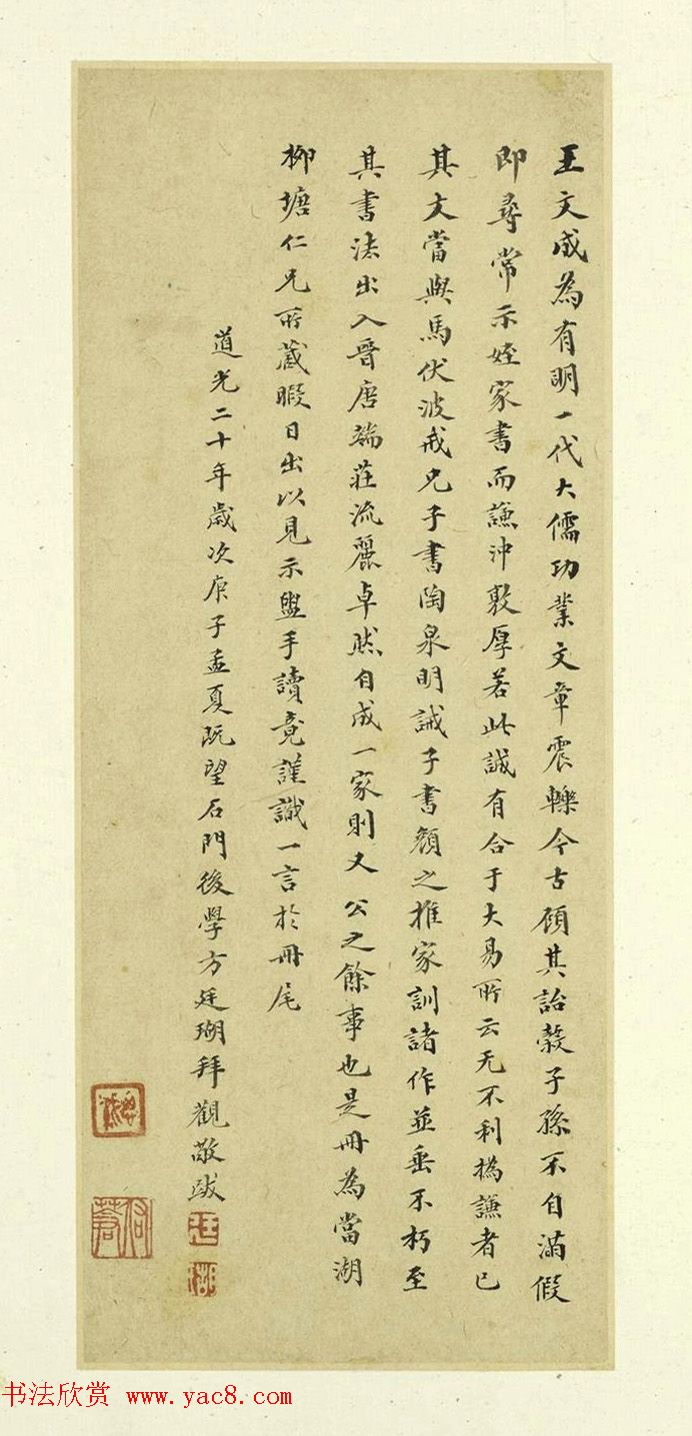 王文成為有明一代大儒功業文章震轢今古顧其詒穀子孫不自滿假
即尋常示姪家書而謙沖敦厚若此誠有合于大易所云无不利撝謙者已
其文當與馬伏波戒兄子書陶泉明誡子書顏之推家訓諸作並垂不朽至
其書法出入晉唐端莊流麗卓然自成一家則又 公之餘事也是冊為當湖
柳塘仁兄所藏暇日出以見示盥手讀竟謹識一言於冊尾
道光二十年歲次庚子孟夏既望石門後學方廷瑚拜觀敬跋
廷
瑚
书法欣赏 www.yac8.com